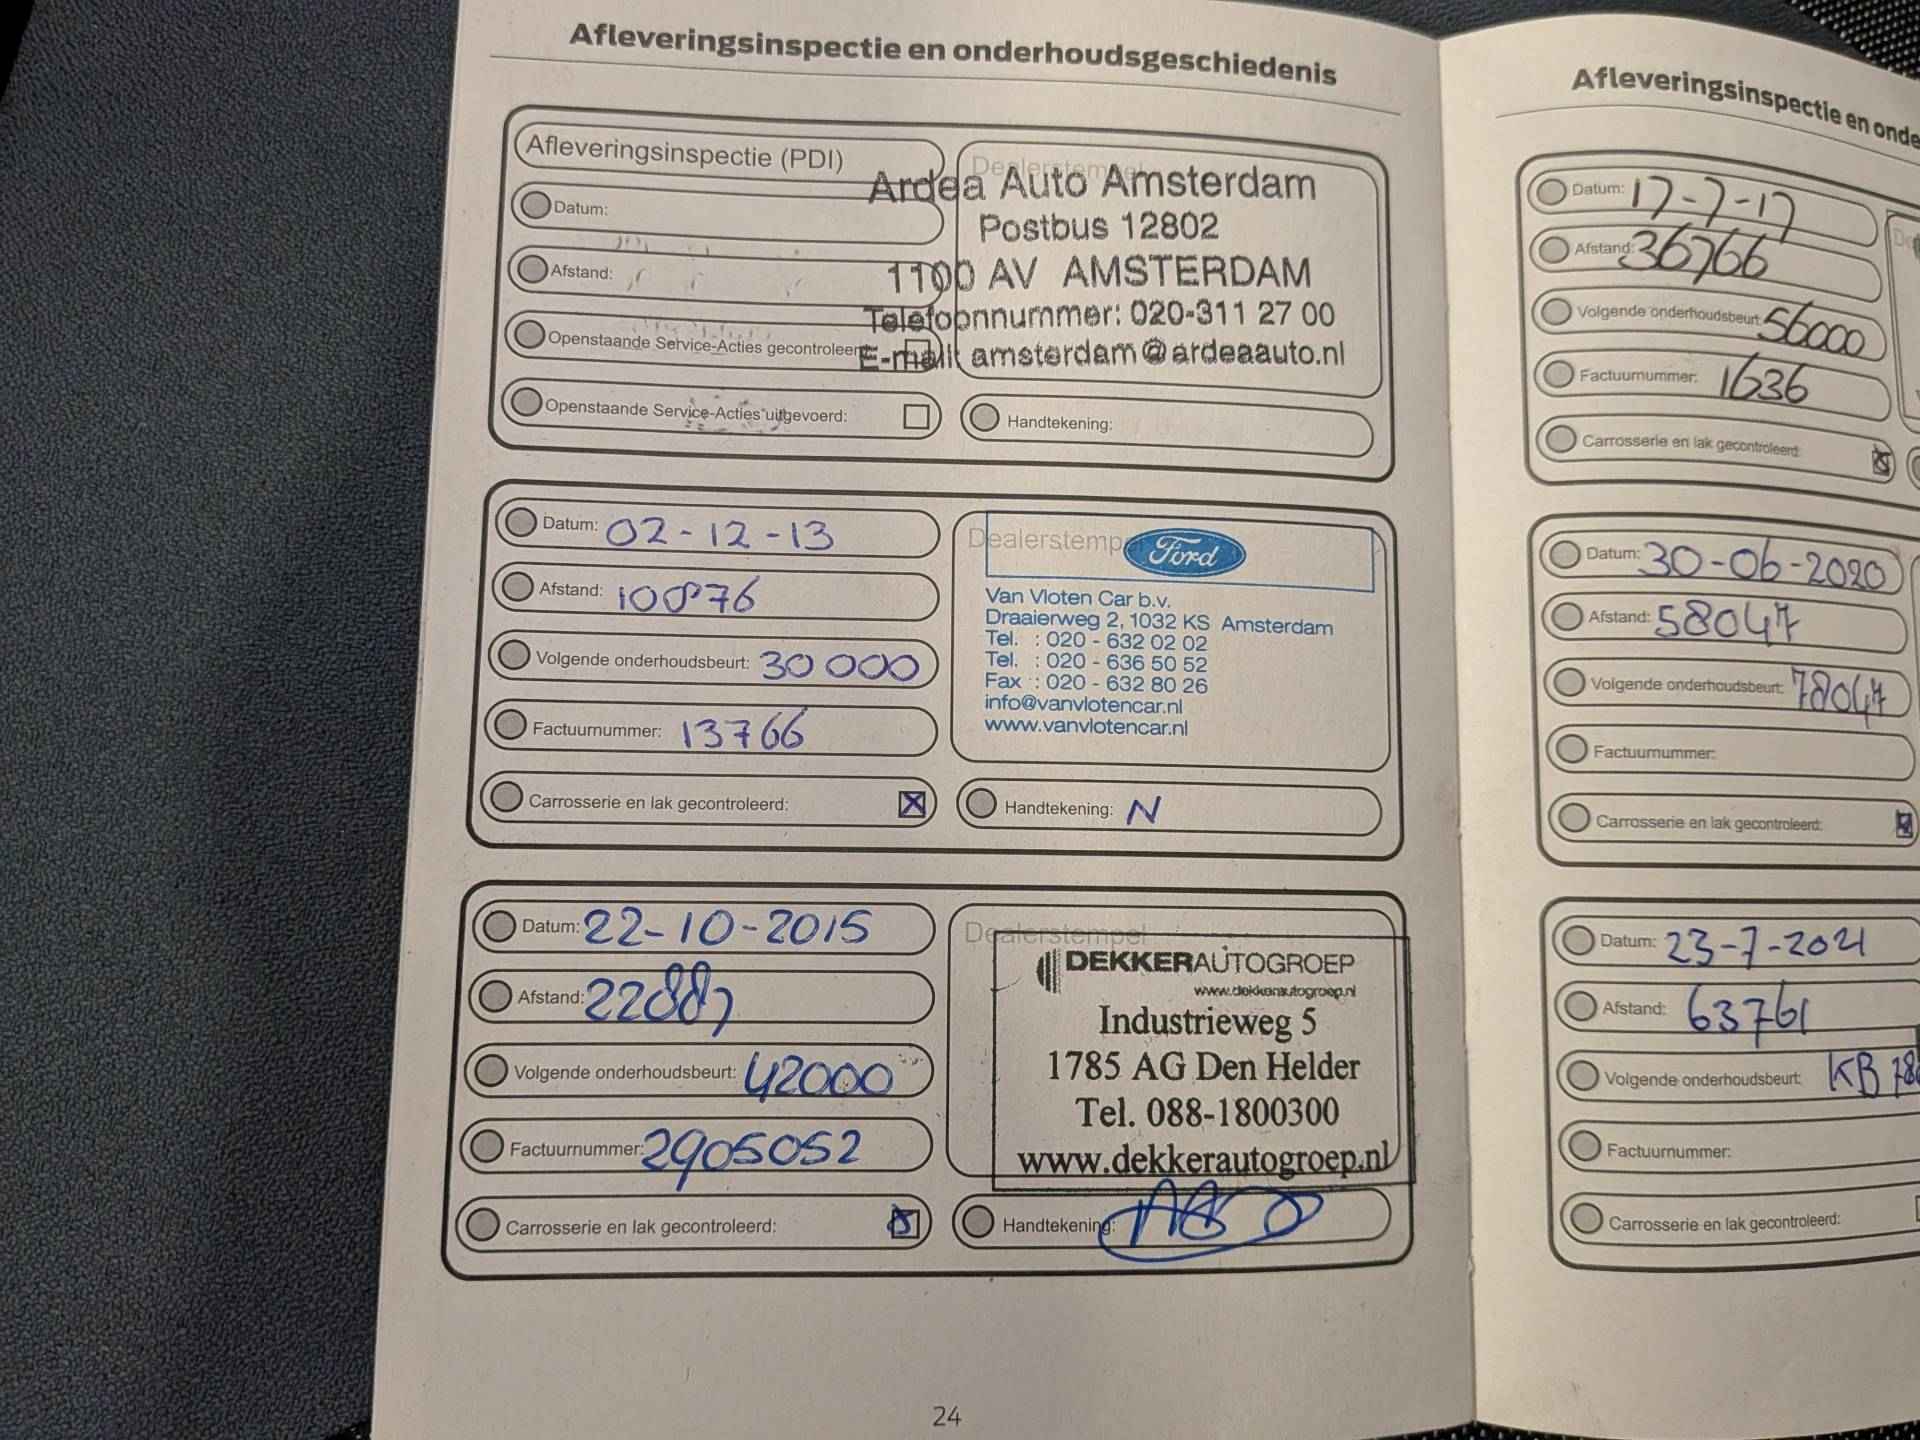 Afleveringsinspectie en onderhoudsgeschiedenis
Afleveringsinspectie (PDI)
Datum:
Afstand:
Openstaande Service-Acties gecontroleer
Openstaande Service-Acties uitgevoerd:
Dealerstempel
Ardea Auto Amsterdam
Postbus 12802
1100 AV AMSTERDAM
Telefoonnummer: 020-311 27 00
E-mail: amsterdam@ardeaauto.nl
Handtekening:
Datum: 02-12-13
Afstand: 10876
Volgende onderhoudsbeurt: 30 000
Factuurnummer: 13766
Carrosserie en lak gecontroleerd:
Dealerstempe
Ford
Van Vloten Car b.v.
Draaierweg 2, 1032 KS Amsterdam
Tel. : 020 - 632 02 02
Tel. : 020 - 636 50 52
Fax : 020 - 632 80 26
info@vanvlotencar.nl
www.vanvlotencar.nl
Handtekening: N
Datum: 22-10-2015
Afstand: 22887
Volgende onderhoudsbeurt: 42000
Factuurnummer: 2905052
Carrosserie en lak gecontroleerd:
Dealerstempel
DEKKERAUTOGROEP
www.dekkerautogroep.nl
Industrieweg 5
1785 AG Den Helder
Tel. 088-1800300
www.dekkerautogroep.nl
Handtekening:
24
Afleveringsinspectie en onde
Datum: 17-7-17
Afstand: 36766
Volgende onderhoudsbeurt: 56000
Factuurnummer: 1636
Carrosserie en lak gecontroleerd:
Datum: 30-06-2020
Afstand: 58047
Volgende onderhoudsbeurt: 78047
Factuurnummer:
Carrosserie en lak gecontroleerd:
Datum: 23-7-2021
Afstand: 63761
Volgende onderhoudsbeurt: KB 78
Factuurnummer:
Carrosserie en lak gecontroleerd: